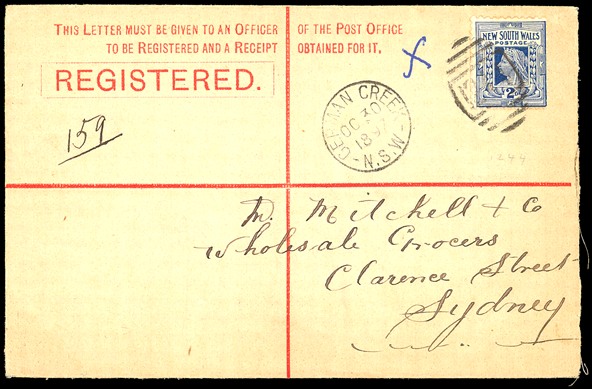 THIS LETTER MUST BE GIVEN TO AN OFFICER OF THE POST OFFICE
TO BE REGISTERED AND A RECEIPT OBTAINED FOR IT.
REGISTERED.
159
NEW SOUTH WALES
POSTAGE
2D
GERMAN CREEK
OC 30
189
N.S.W
1244
M. Mitchell & Co
Wholesale Grocers
Clarence Street
Sydney